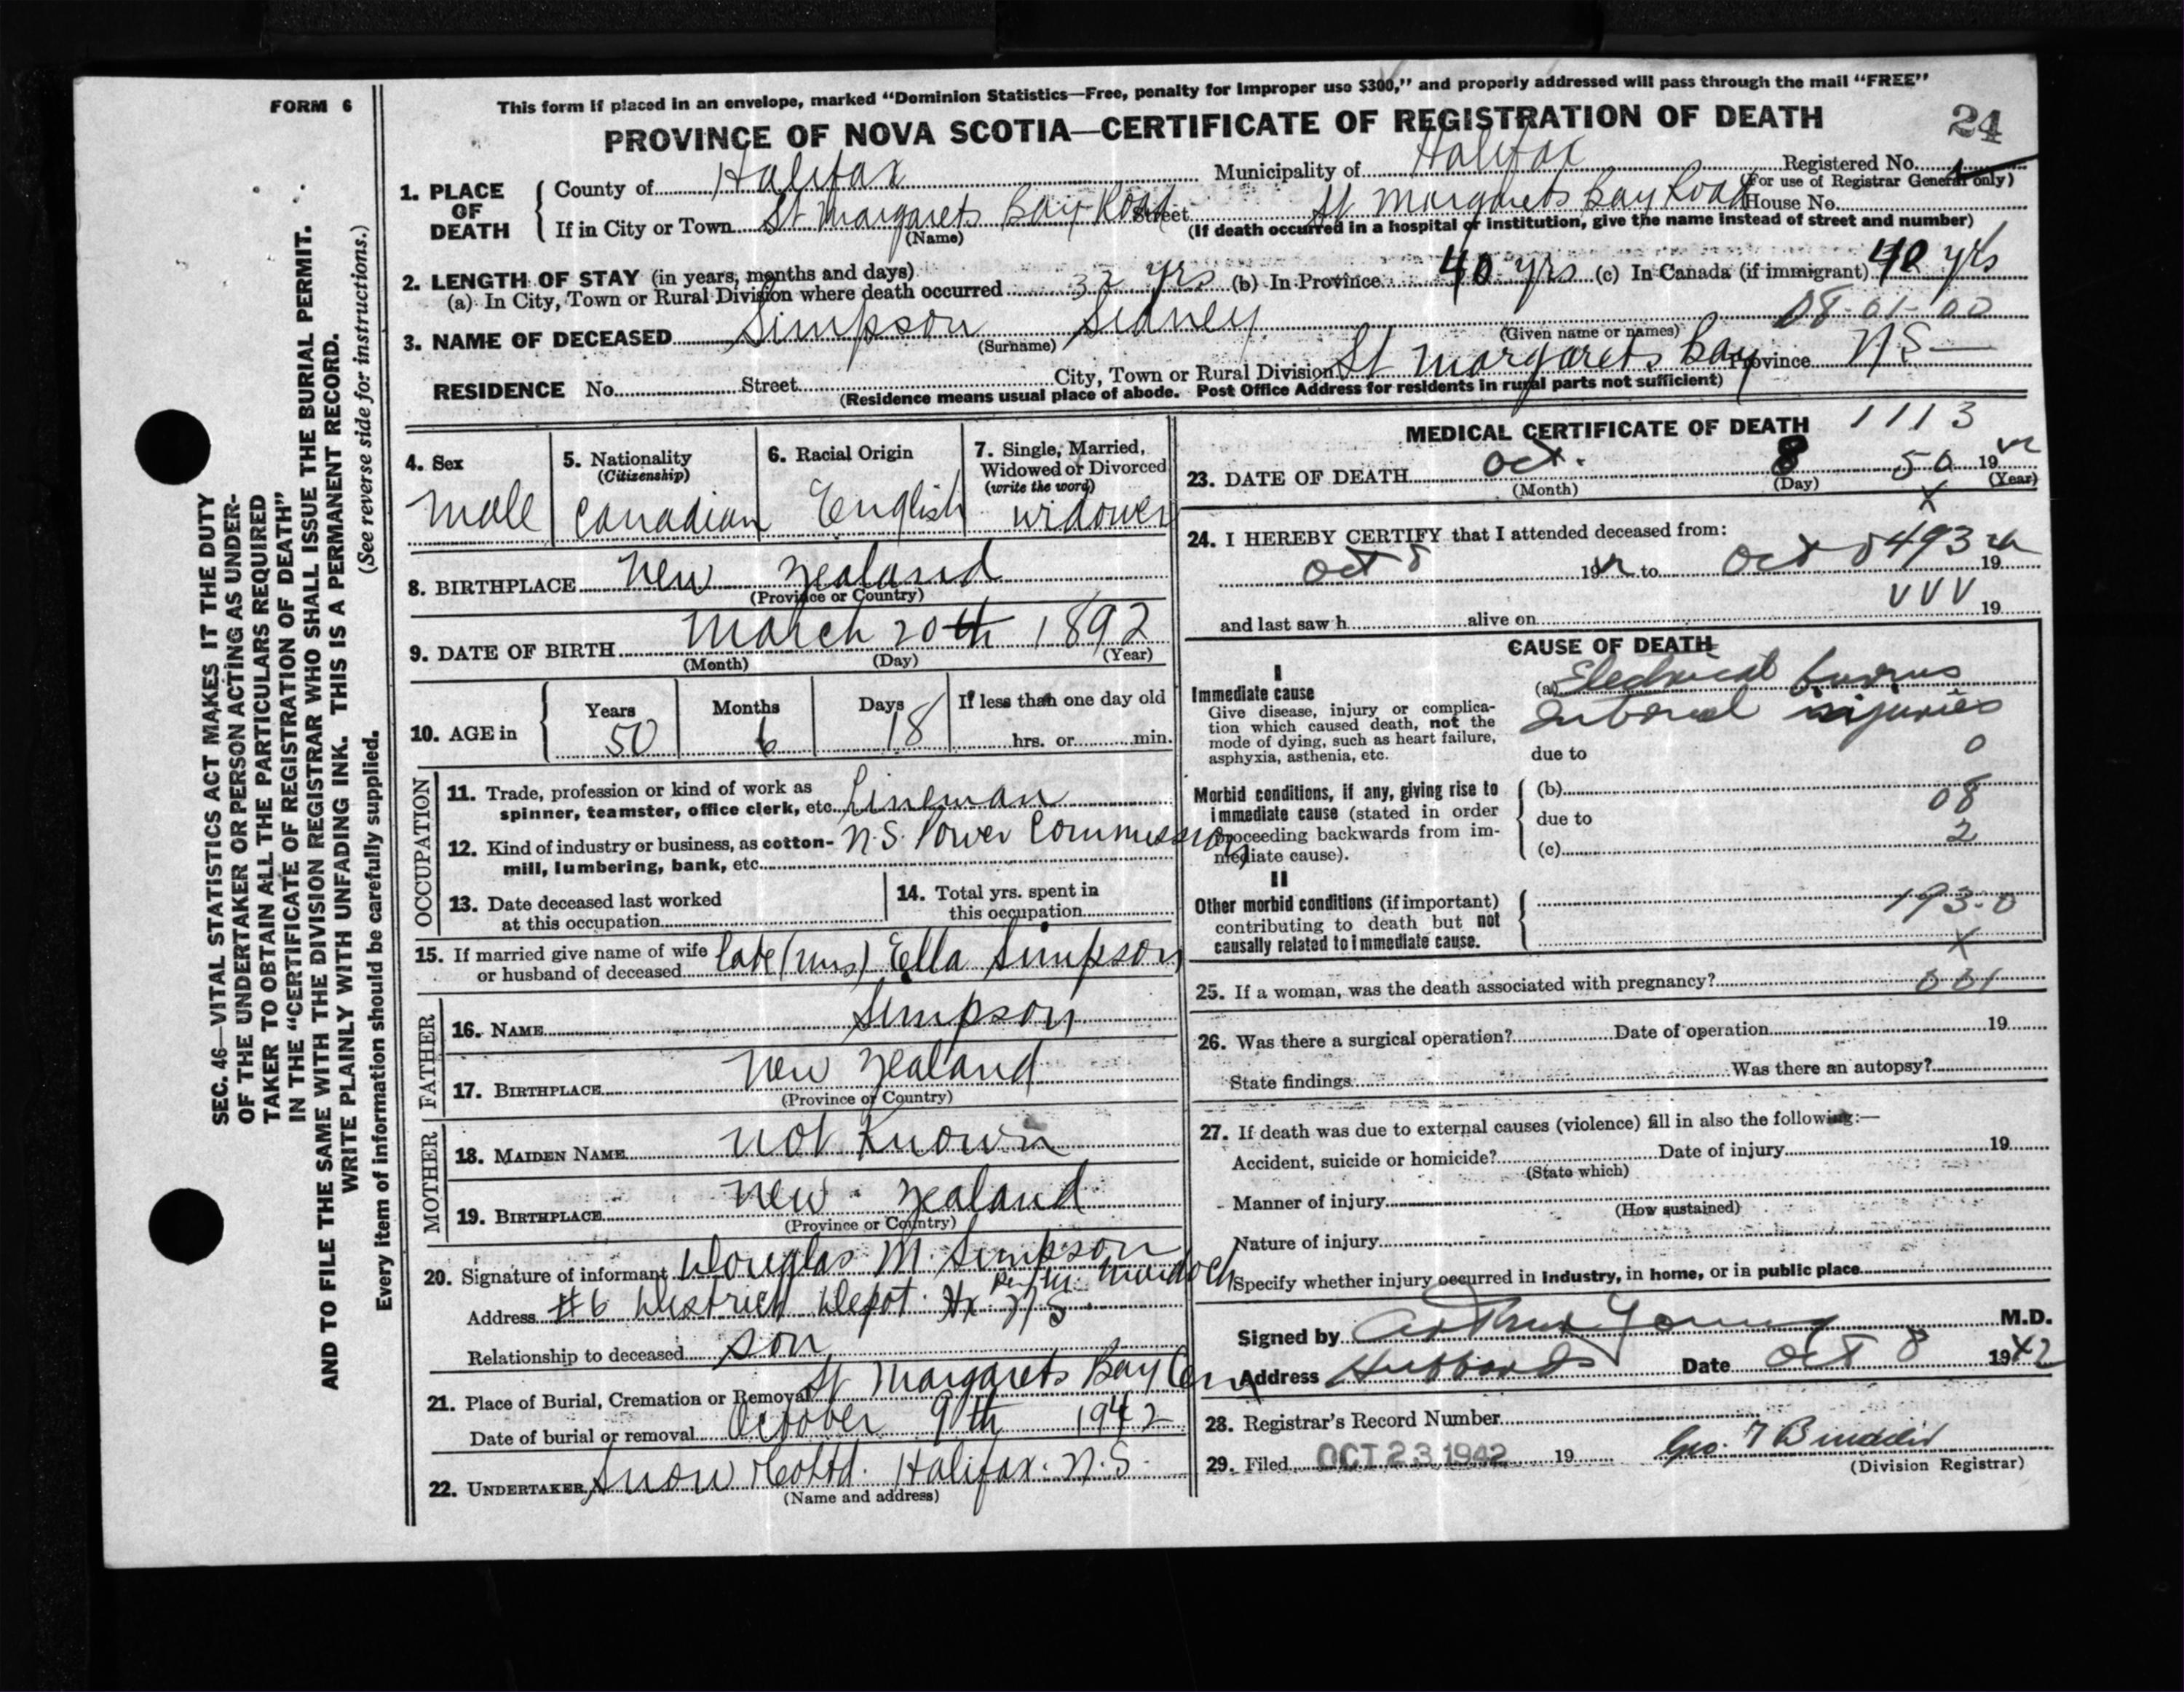 FORM 6
This form if placed in an envelope, marked "Dominion Statistics—Free, penalty for improper use $300," and properly addressed will pass through the mail "FREE"
PROVINCE OF NOVA SCOTIA—CERTIFICATE OF REGISTRATION OF DEATH
24
1. PLACE OF DEATH
County of Halifax Municipality of Halifax Registered No.
(For use of Registrar General only)
If in City or Town St Margarets Bay Road Street St Margarets Bay Road House No.
(Name) (If death occurred in a hospital or institution, give the name instead of street and number)
2. LENGTH OF STAY (in years, months and days)
(a) In City, Town or Rural Division where death occurred 32 yrs (b) In Province 40 yrs (c) In Canada (if immigrant) 40 yrs
08-01-00
3. NAME OF DECEASED Simpson Sidney
(Surname) (Given name or names)
RESIDENCE No. Street City, Town or Rural Division St Margarets Bay Province NS—
(Residence means usual place of abode. Post Office Address for residents in rural parts not sufficient)
4. Sex
male
5. Nationality
(Citizenship)
Canadian
6. Racial Origin
English
7. Single, Married,
Widowed or Divorced
(write the word)
widower
8. BIRTHPLACE New Zealand
(Province or Country)
9. DATE OF BIRTH March 20th 1892
(Month) (Day) (Year)
10. AGE in
Years 50
Months 6
Days 18
If less than one day old
hrs. or min.
OCCUPATION
11. Trade, profession or kind of work as
spinner, teamster, office clerk, etc. Lineman
12. Kind of industry or business, as cotton- N.S. Power Commission
mill, lumbering, bank, etc.
13. Date deceased last worked
at this occupation
14. Total yrs. spent in
this occupation
15. If married give name of wife
or husband of deceased late (Mrs) Ella Simpson
FATHER
16. NAME Simpson
17. BIRTHPLACE New Zealand
(Province or Country)
MOTHER
18. MAIDEN NAME not Known
19. BIRTHPLACE New Zealand
(Province or Country)
20. Signature of informant Douglas M. Simpson
Murdoch
Address #6 District Depot. Hx. N S
Relationship to deceased son
21. Place of Burial, Cremation or Removal St Margarets Bay Cem
Date of burial or removal October 9th 1942
22. UNDERTAKER Snow & Co Ltd. Halifax. N.S.
(Name and address)
MEDICAL CERTIFICATE OF DEATH 1113
23. DATE OF DEATH Oct. 8 50 19
(Month) (Day) (Year)
X
24. I HEREBY CERTIFY that I attended deceased from:
Oct 8 19 to Oct 8 493 19
VVV
and last saw h alive on 19
CAUSE OF DEATH
I
Immediate cause
Give disease, injury or complica-
tion which caused death, not the
mode of dying, such as heart failure,
asphyxia, asthenia, etc.
(a) Electrical burns
Internal injuries
due to 0
Morbid conditions, if any, giving rise to
immediate cause (stated in order
proceeding backwards from im-
mediate cause).
(b) 08
due to
(c) 2
II
Other morbid conditions (if important)
contributing to death but not
causally related to immediate cause.
193-0
X
25. If a woman, was the death associated with pregnancy? 001
26. Was there a surgical operation? Date of operation 19
State findings Was there an autopsy?
27. If death was due to external causes (violence) fill in also the following:—
Accident, suicide or homicide? Date of injury 19
(State which)
Manner of injury
(How sustained)
Nature of injury
Specify whether injury occurred in industry, in home, or in public place
Signed by Arthur Young M.D.
Address Hubbards Date Oct 8 1942
28. Registrar's Record Number
29. Filed OCT 23 1942 19 Geo.
(Division Registrar)
SEC. 46—VITAL STATISTICS ACT MAKES IT THE DUTY
OF THE UNDERTAKER OR PERSON ACTING AS UNDER-
TAKER TO OBTAIN ALL THE PARTICULARS REQUIRED
IN THE "CERTIFICATE OF REGISTRATION OF DEATH"
AND TO FILE THE SAME WITH THE DIVISION REGISTRAR WHO SHALL ISSUE THE BURIAL PERMIT.
WRITE PLAINLY WITH UNFADING INK. THIS IS A PERMANENT RECORD.
Every item of information should be carefully supplied. (See reverse side for instructions.)